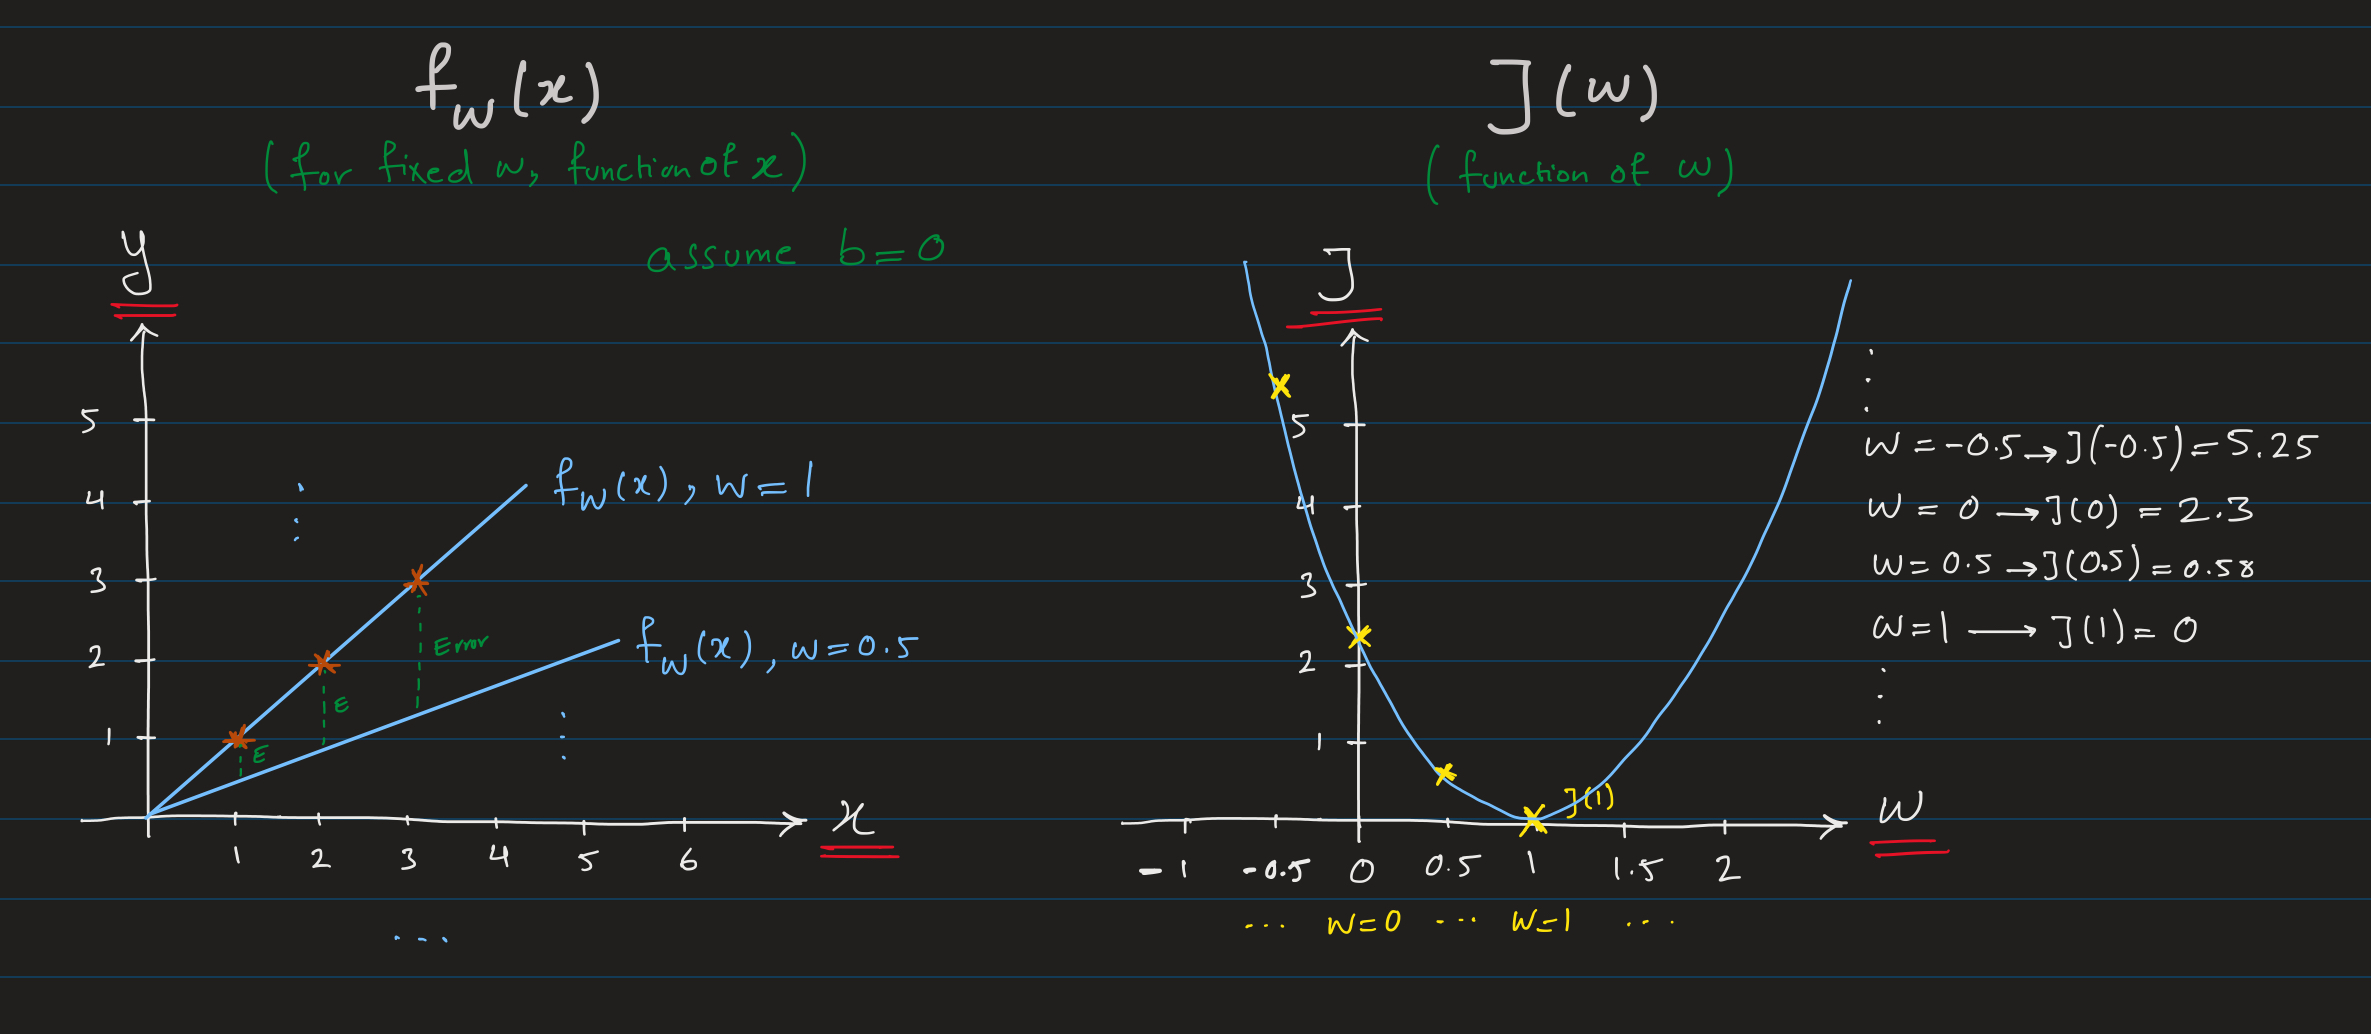 f_w(x)
(for fixed w, function of x)
assume b=0
y
5
4
3
2
1
f_w(x), w=1
f_w(x), w=0.5
Error
E
E
x
1 2 3 4 5 6
...
J(w)
(function of w)
J
5
4
3
2
1
J(1)
w
-1 -0.5 0 0.5 1 1.5 2
... w=0 ... w=1 ...
w=-0.5→J(-0.5)=5.25
w=0→J(0)=2.3
w=0.5→J(0.5)=0.58
w=1→J(1)=0